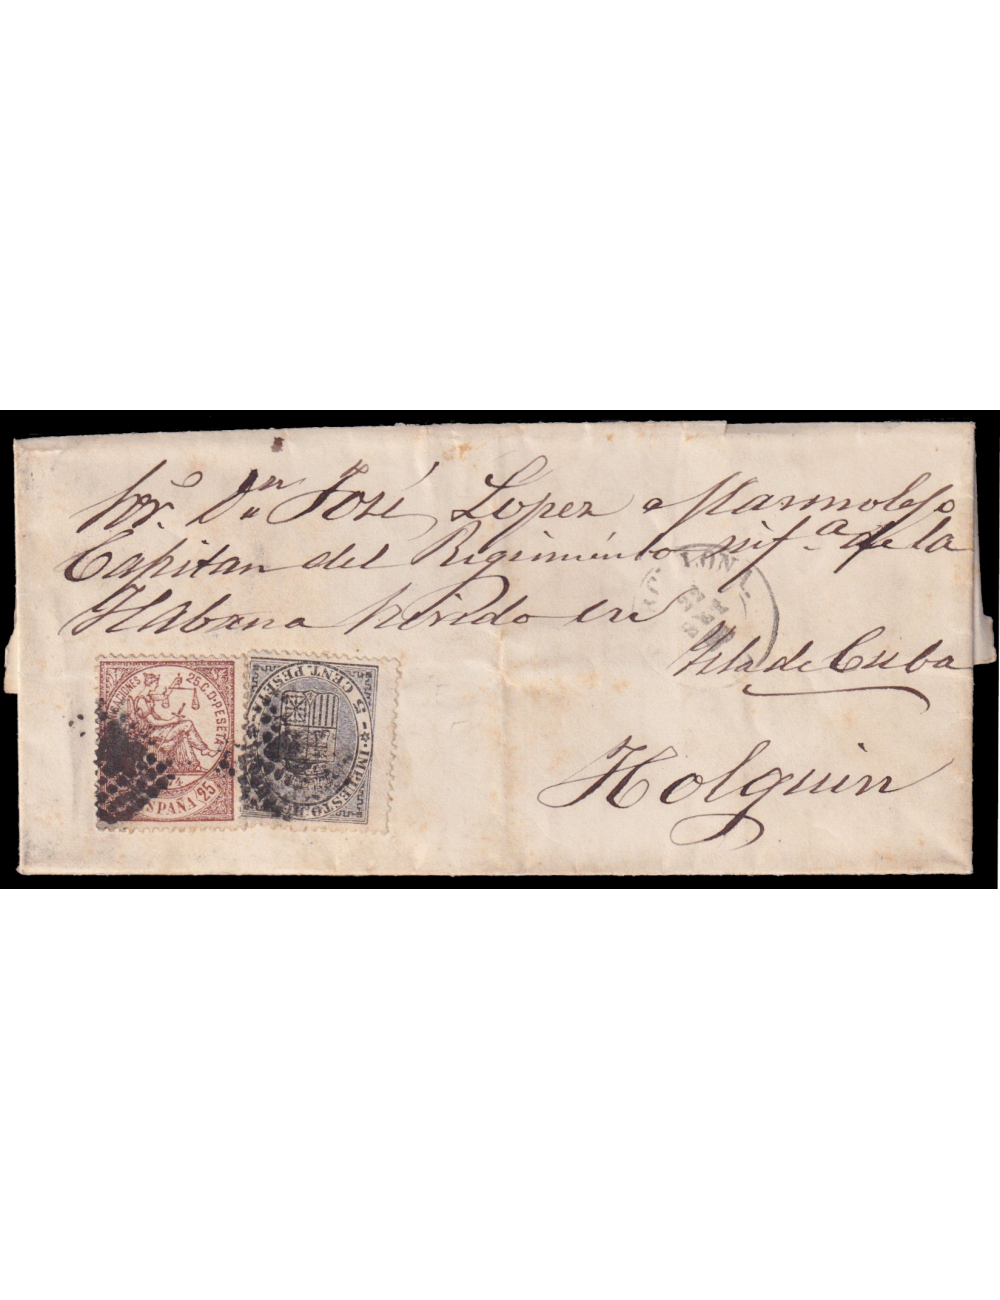 Sor. Dn José Lopez Marmolejo
Capitan del Regimiento inf.a de la
Habana Nº en
Isla de Cuba
Holguin
LONA
22
SET
CIONES 25 C. D. PESETA
ESPAÑA 25
5 CENT. PESETA IMPUESTO